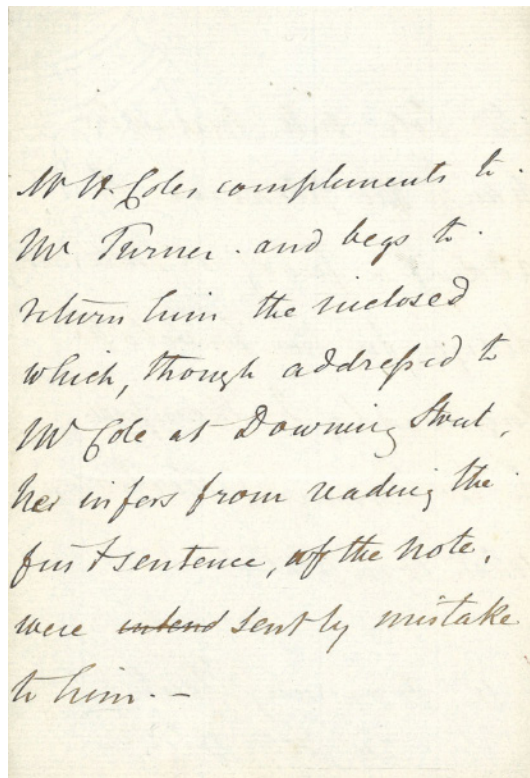 Mr H. Coles complements to
Mr Turner. and begs to
return him the inclosed
which, though addressed to
Mr Cole at Downing Street,
he infers from reading the
first sentence, of the note,
were intend sent by mistake
to him. —